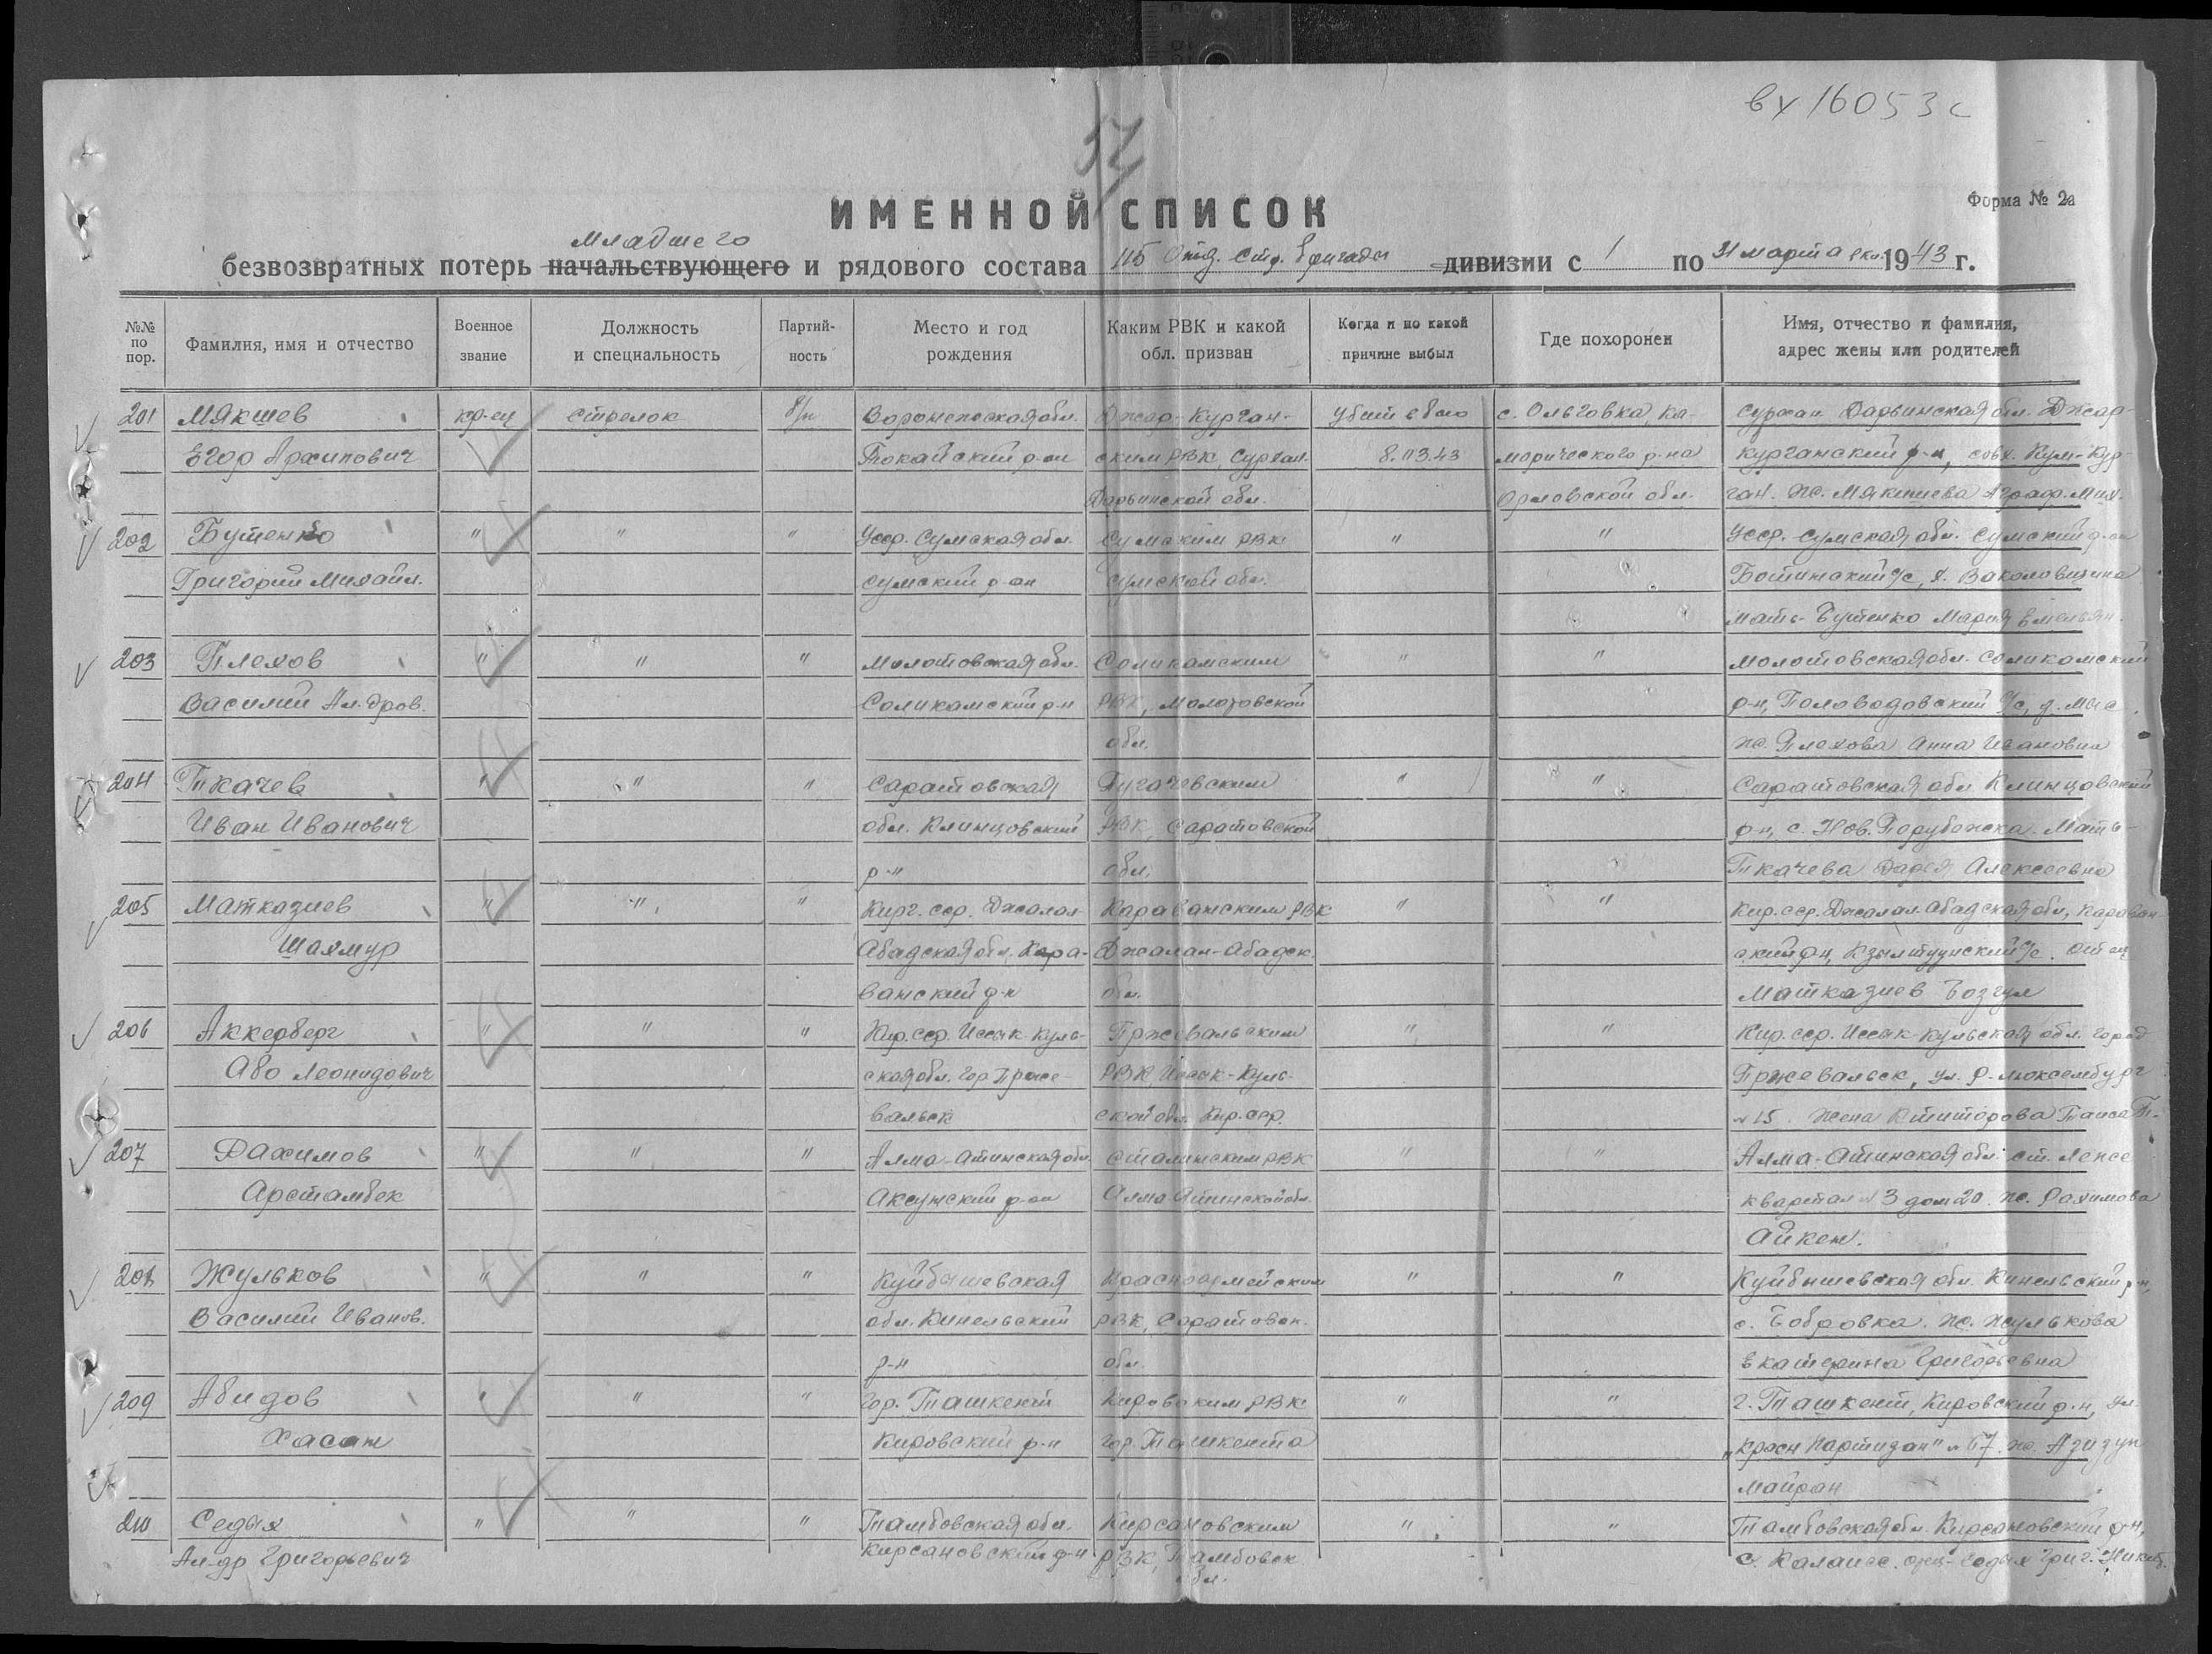 вх 16053с
57
ИМЕННОЙ СПИСОК
Форма № 2а
младшего
безвозвратных потерь начальствующего и рядового состава 115 Отд. Стр. бригады дивизии с 1 по 31 марта 1943 г.
№№ по пор. Фамилия, имя и отчество Военное звание Должность и специальность Партийность Место и год рождения Каким РВК и какой обл. призван Когда и по какой причине выбыл Где похоронен Имя, отчество и фамилия, адрес жены или родителей
201 Мякшев кр-ец стрелок б/п Воронежская обл. Джар-Курган- убит в бою с. Ольговка, Ка- Сурхан Дарьинская обл. Джар-
Егор Архипович Токайский р-он ским РВК, Сурхан- 8.03.43 марического р-на курганский р-н, совх. Кум-Кур-
Дарьинской обл. Орловской обл. ган. ж. Мякшева Аграф. Мих.
202 Бутенко " " " Усср. Сумская обл. Сумским РВК " " Усср. Сумская обл. Сумский р-он
Григорий Михайл. Сумский р-он Сумской обл. с/с, д. Вакаловщина
мать- Бутенко Мария Емельян.
203 Плехов " " " Молотовская обл. Соликамским " " Молотовская обл. Соликамский
Василий Ал-дров. Соликамский р-н РВК, Молотовской р-н, Половодовский с/с, д. Мыс
обл. ж. Плехова Анна Ивановна
204 Ткачев " " " Саратовская Пугачевским " " Саратовская обл Клинцовский
Иван Иванович обл. Клинцовский РВК, Саратовской р-н, с. Нов. Порубежка. Мать-
р-н обл. Ткачева Дарья Алексеевна
205 Матказиев " " " Кирг. сср. Джалал- Караванским РВК " " Кир. сср. Джалал-Абадская обл, Караван-
Шахмур Абадская обл. Кара- Джалал-Абадск. ский р-н, с/с. Отец
ванский р-н обл. Матказиев Бозгул
206 Аккерберг " " " Кир. сср. Иссык-Куль- Пржевальским " " Кир. сср. Иссык-Кульская обл. город
Або Леонидович ская обл. гор. Прже- РВК, Иссык-Куль- Пржевальск, ул. Р. Люксембург
вальск ской обл. Кир. сср. №15. жена Ктиторова Таиса Т.
207 Рахимов " " " Алма-Атинская обл. Сталинским РВК " " Алма-Атинская обл. ст. Лепсе
Арстамбек Аксуйский р-он Алма Атинской обл. квартал №3 дом 20. ж. Рахимова
Айкен.
208 Жульков " " " Куйбышевская Красноармейским " " Куйбышевская обл. Кинельский р-н,
Василий Иванов. обл. Кинельский РВК, Саратовск. с. Бобровка. ж. Жулькова
р-н обл. Екатерина Григорьевна
209 Абидов " " " гор. Ташкент Кировским РВК " " г. Ташкент, Кировский р-н, ул.
Хасан Кировский р-н гор. Ташкента „Красн Партизан" №67. ж. Азизун
Майран
210 Седых " " " Тамбовская обл. Кирсановским " " Тамбовская обл. Кирсановский р-н,
Ал-др Григорьевич Кирсановский р-н РВК, Тамбовск. с. Калаисс. отец- Седых Григ. Никит.
обл.